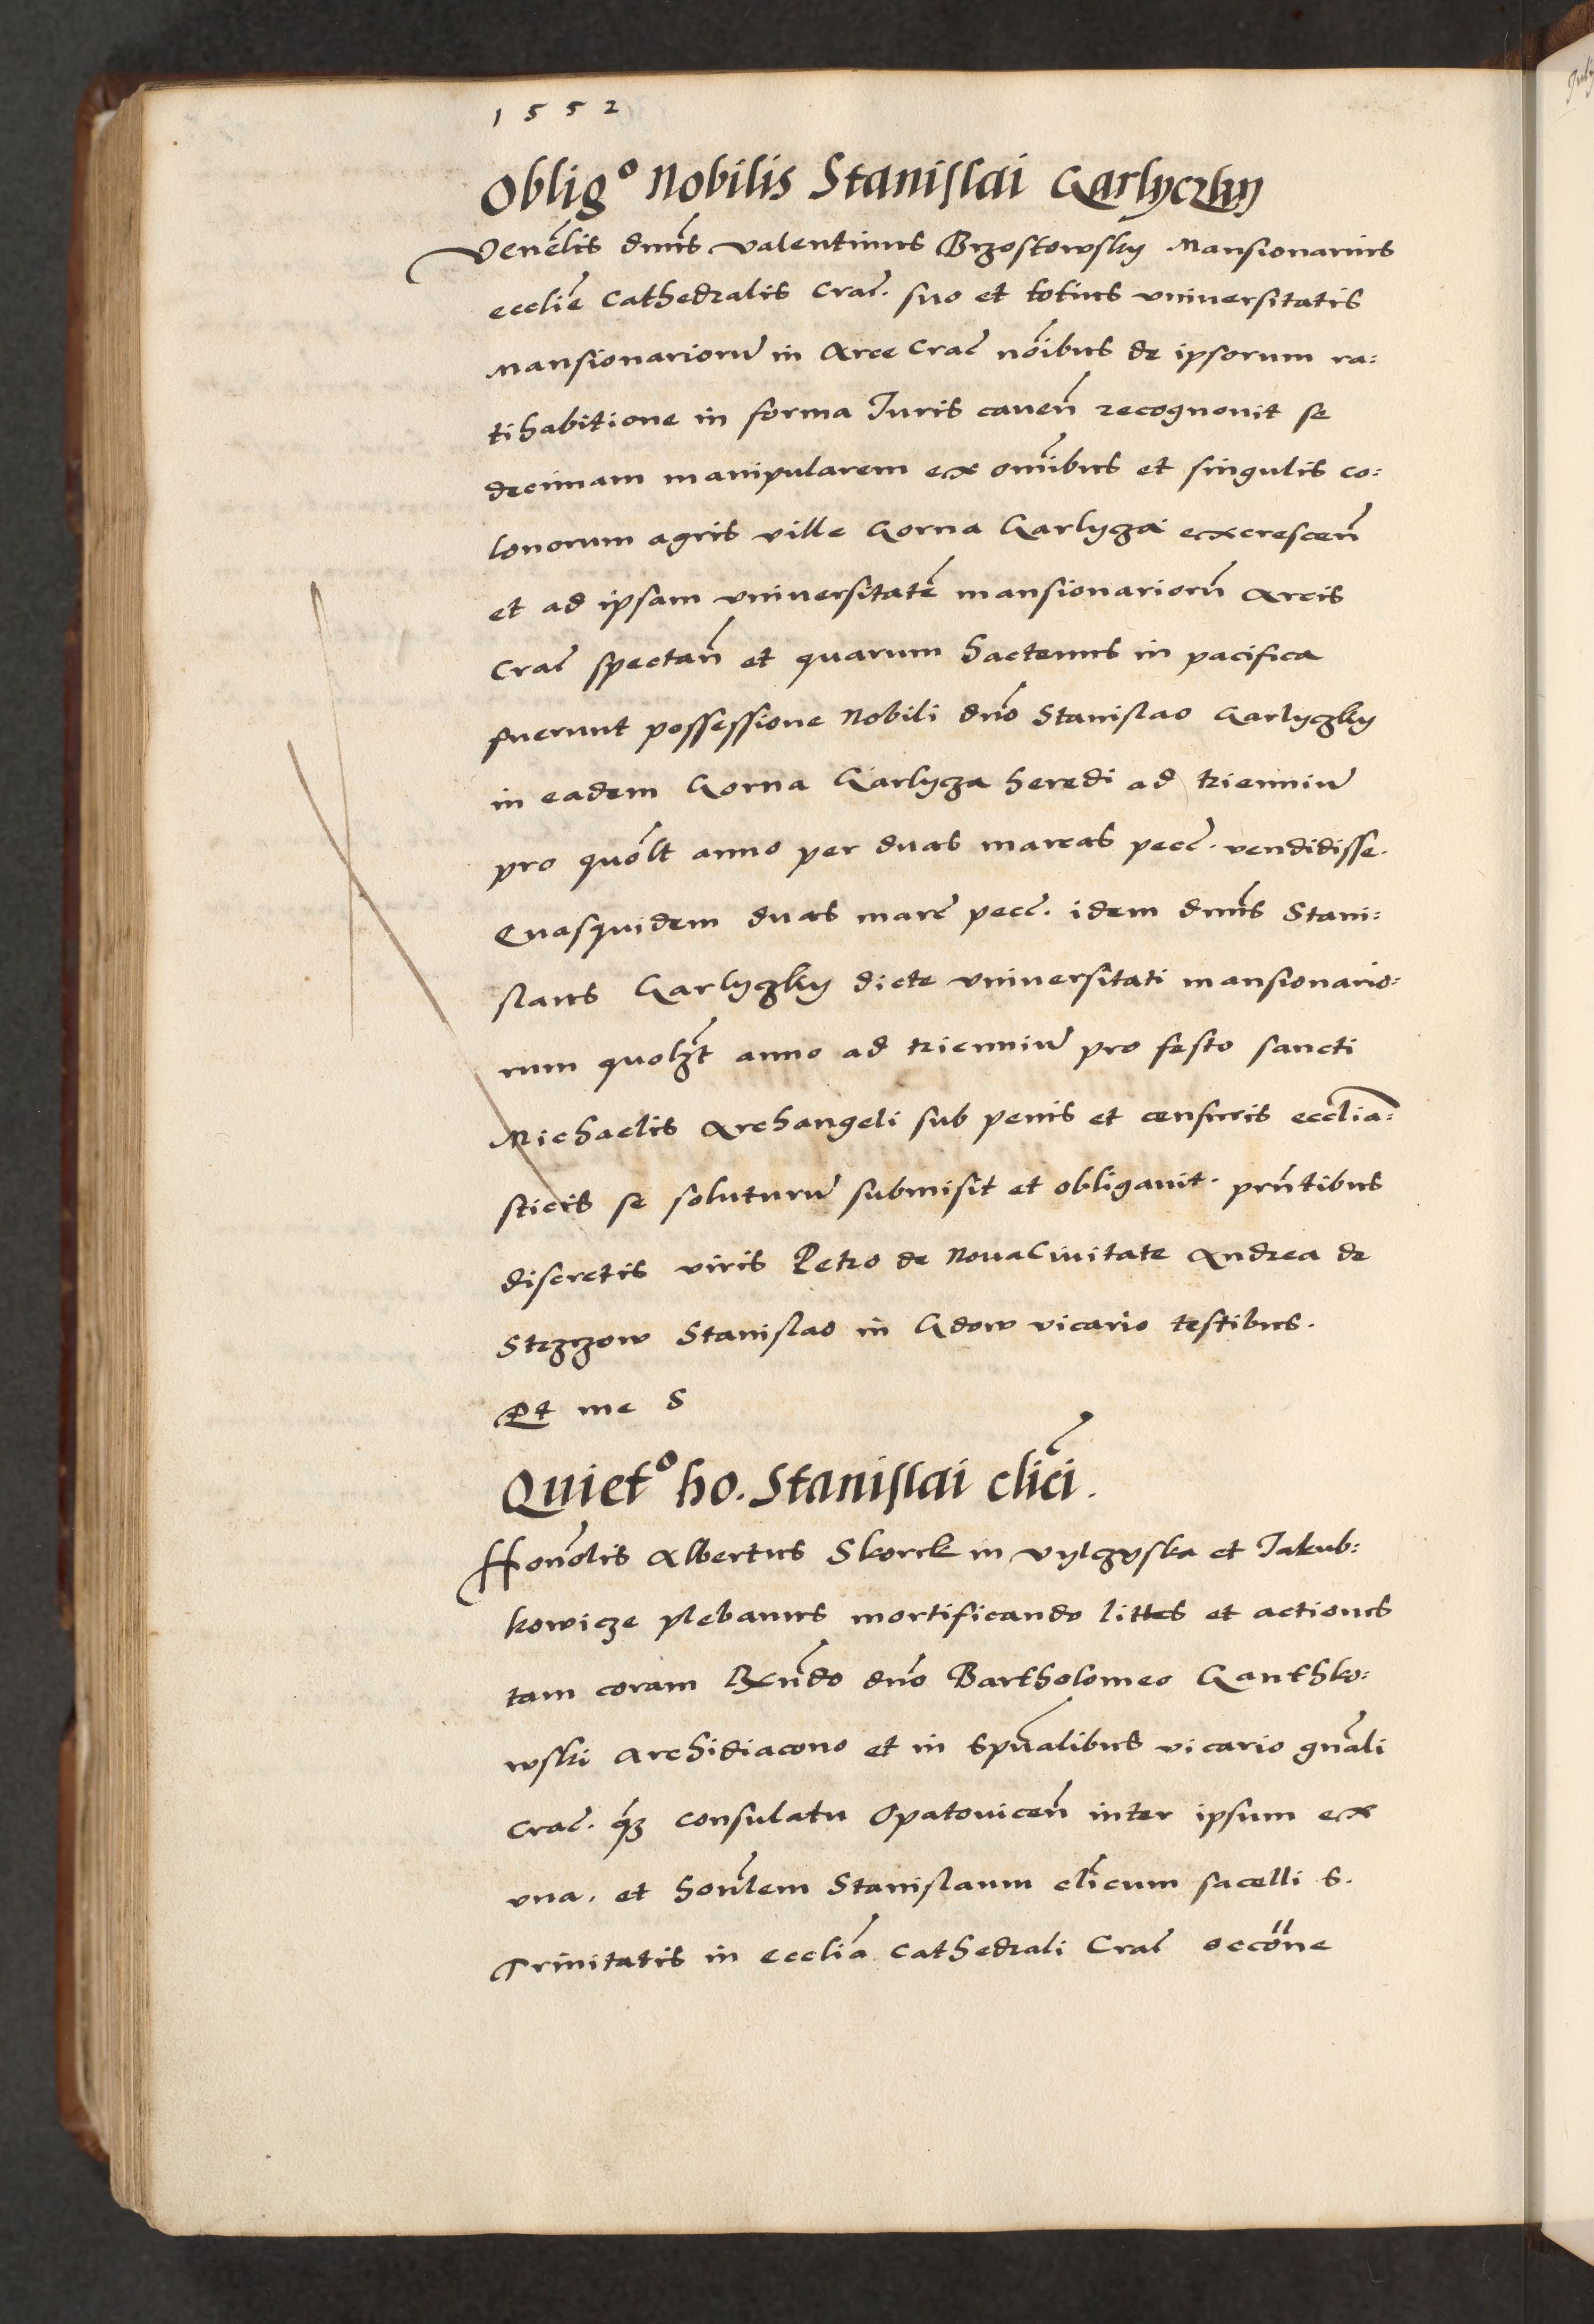 1552
Oblig° Nobilis Stanislai Garlyczky
Venelis dnus Valentinus Brzostowsky Mansionarius
ecclie Cathedralis Crac. suo et totius universitatis
Mansionarioru in Arce Crac noibus de ipsorum ra:
tihabitione in forma Juris caven recognovit se
decimam manipularem ex omibus et singulis co:
lonorum agris ville Gorna Garlycza excrescen
et ad ipsam universitate mansionarioru Arcis
Crac spectan et quarum hactenus in pacifica
fuerunt possessione Nobili dno Stanislao Garlyczky
in eadem Gorna Garlycza heredi ad trienniu
pro quolt anno per duas marcas pecc. vendidisse.
Quasquidem duas marc pecc. idem dnus Stani:
slaus Garlyczky dicte universitati mansionario:
rum quolzt anno ad trienniu pro festo sancti
Michaelis Archangeli sub penis et censuris ecclia:
sticis se soluturu submisit et obligavit. prntibus
discretis viris Petro de Nova Civitate Andrea de
Strzezow Stanislao in Gdow vicario testibus.
Et me S
Quiet° ho. Stanislai clici.
Honolis Albertus Skorek in Vylczyska et Jakub:
kowicze plebanus mortificando littes et actiones
tam coram Rndo dno Bartholomeo Ganthko:
wski Archidiacono et in Spualibus vicario gnali
Crac. qz consulatu Opatovicen inter ipsum ex
una. et honlem Stanislaum clicum sacelli S.
Trinitatis in ecclia Cathedrali Crac occone